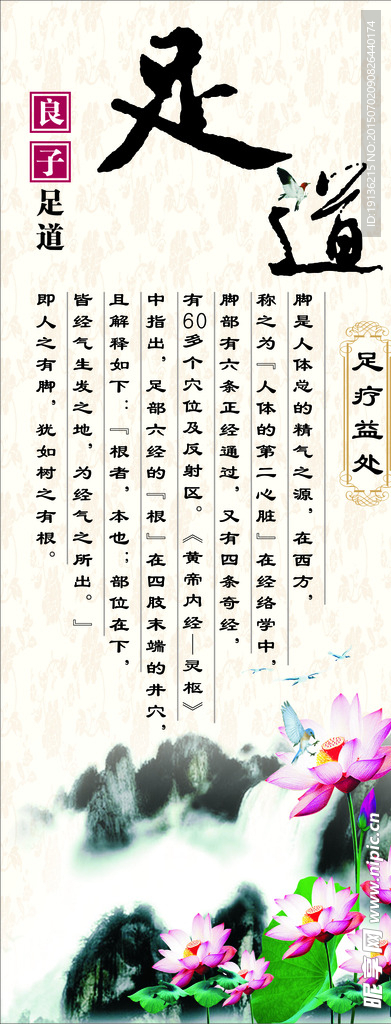 足道
良子足道
足疗益处
脚是人体总的精气之源，在西方，
称之为『人体的第二心脏』在经络学中，
脚部有六条正经通过，又有四条奇经，
有60多个穴位及反射区。《黄帝内经—灵枢》
中指出，足部六经的『根』在四肢末端的井穴，
且解释如下：『根者，本也；部位在下，
皆经气生发之地，为经气之所出。』
即人之有脚，犹如树之有根。
ID:19136215 NO:20150702090826440174
昵享网 www.nipic.cn